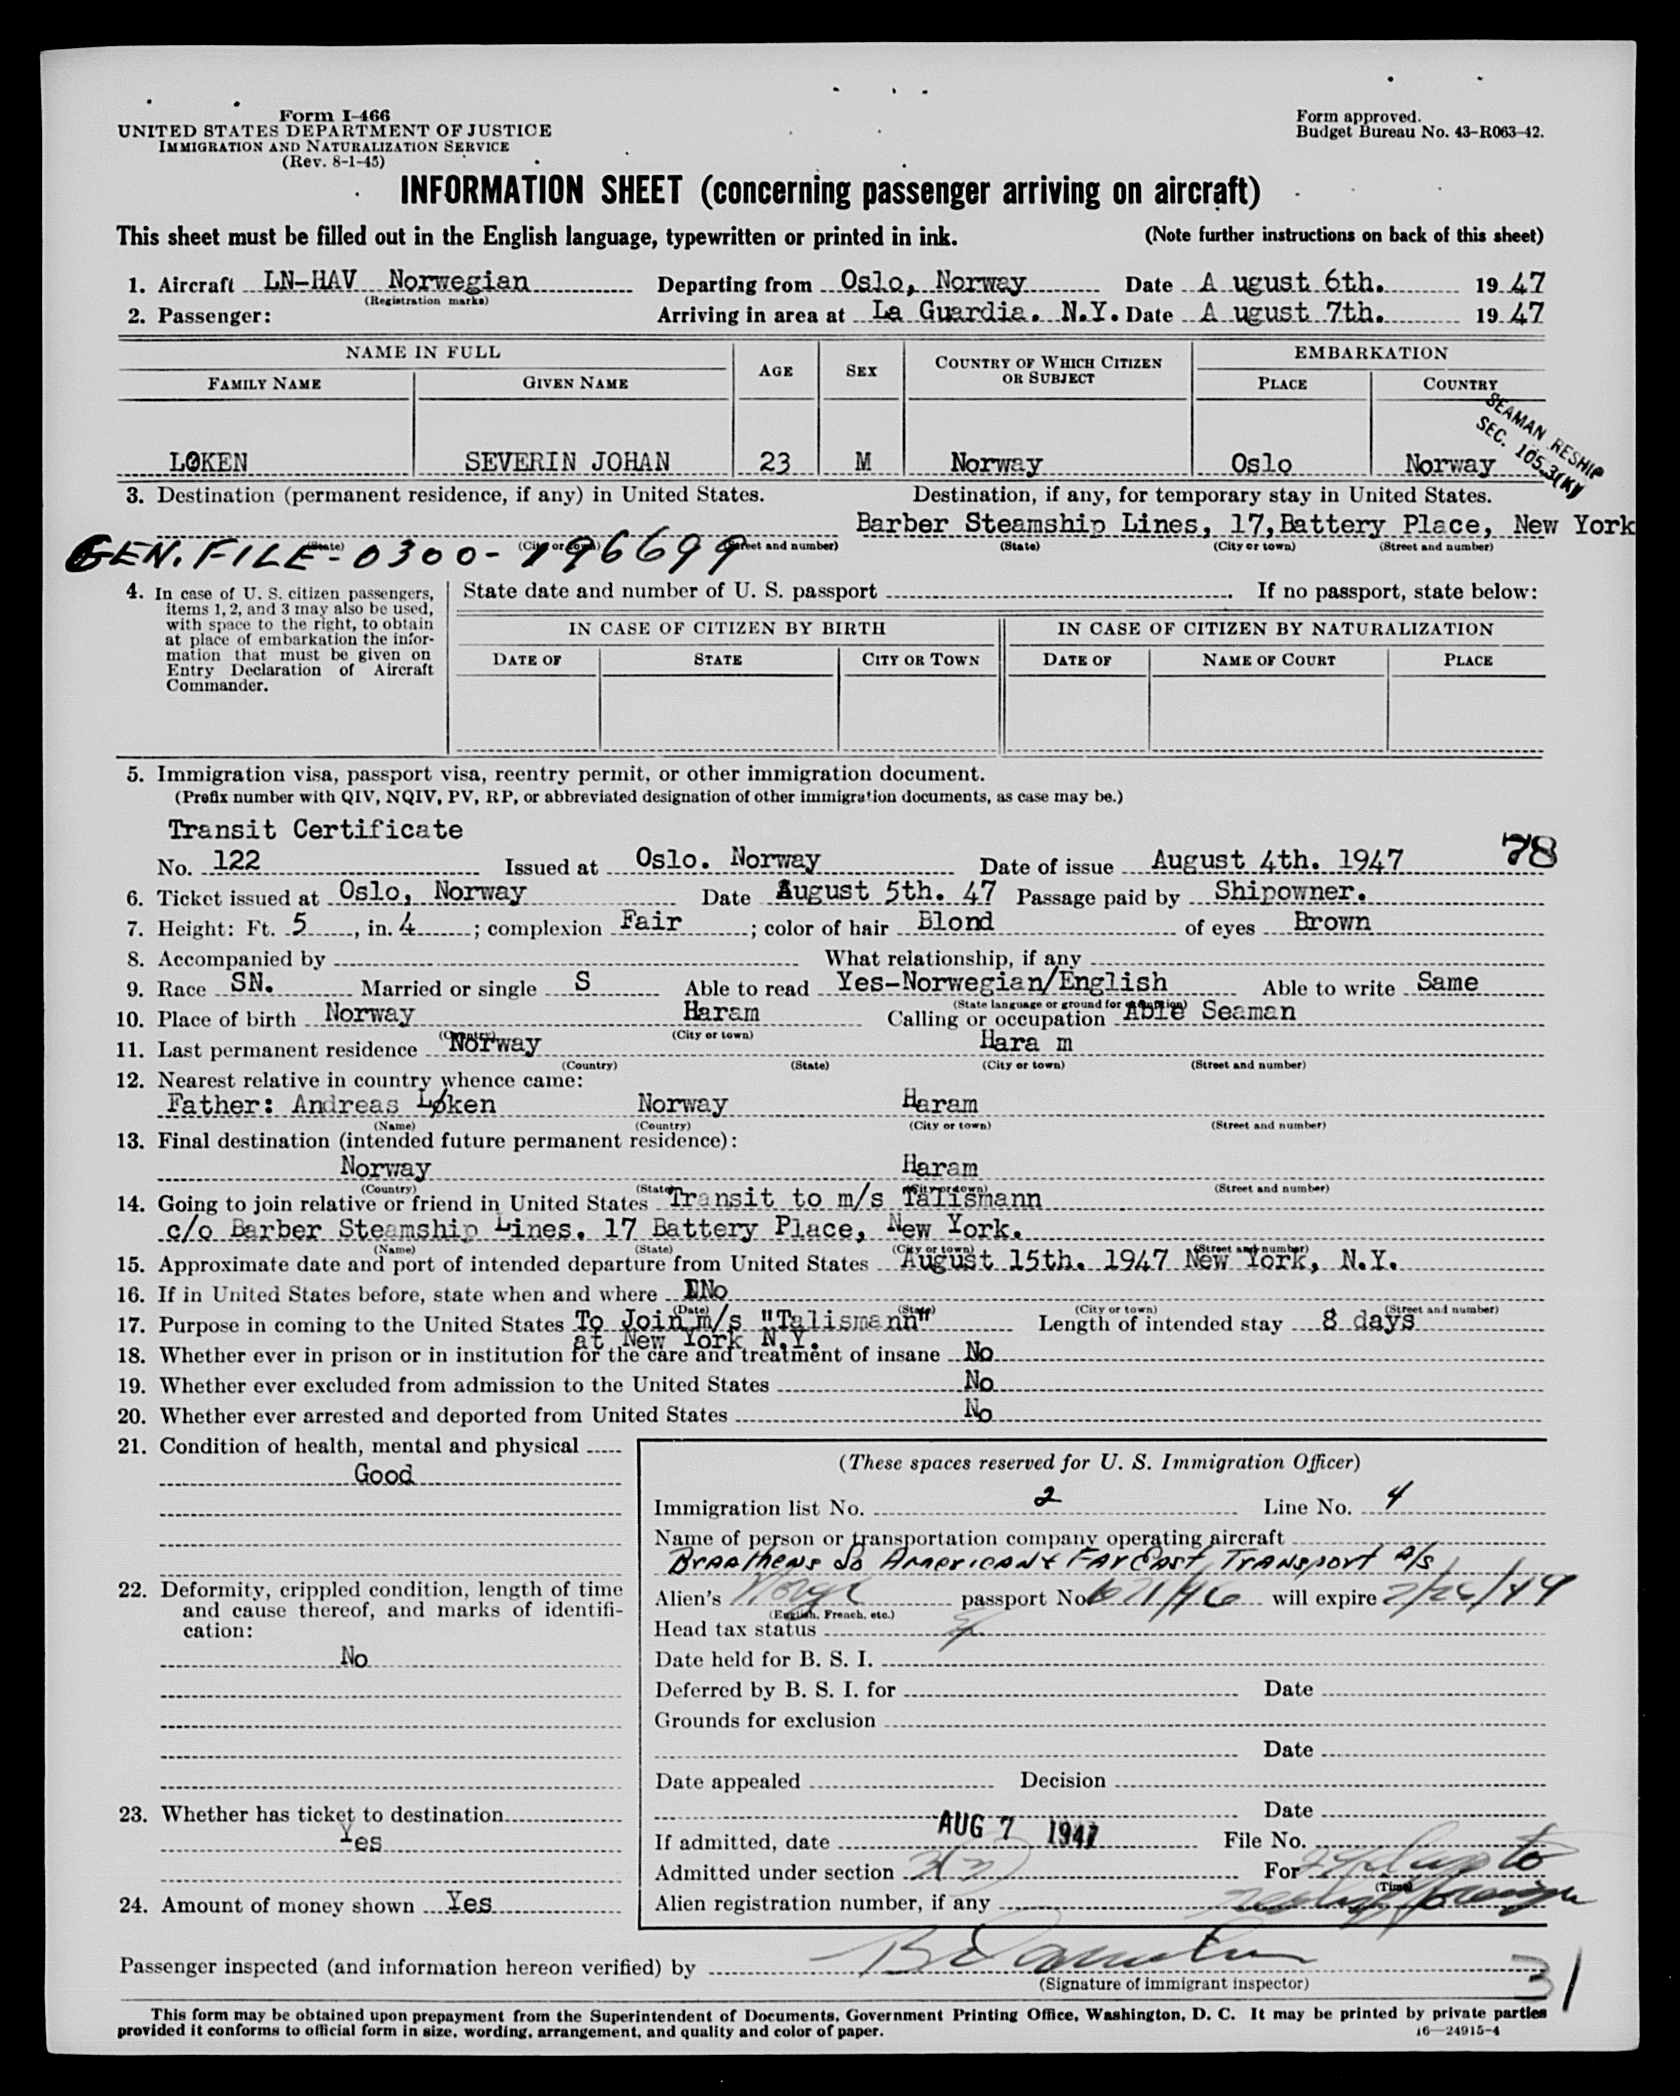 Form I-466
UNITED STATES DEPARTMENT OF JUSTICE
IMMIGRATION AND NATURALIZATION SERVICE
(Rev. 8-1-45)
Form approved.
Budget Bureau No. 43-R063-42.
INFORMATION SHEET (concerning passenger arriving on aircraft)
This sheet must be filled out in the English language, typewritten or printed in ink. (Note further instructions on back of this sheet)
1. Aircraft LN-HAV Norwegian Departing from Oslo, Norway Date A ugust 6th. 19 47
(Registration marks)
2. Passenger: Arriving in area at La Guardia. N.Y. Date A ugust 7th. 19 47
NAME IN FULL AGE SEX COUNTRY OF WHICH CITIZEN OR SUBJECT EMBARKATION
FAMILY NAME GIVEN NAME PLACE COUNTRY
SEAMAN RESHIP
SEC. 105.3(K)
LØKEN SEVERIN JOHAN 23 M Norway Oslo Norway
3. Destination (permanent residence, if any) in United States. Destination, if any, for temporary stay in United States.
Barber Steamship Lines, 17, Battery Place, New York
GEN. FILE - 0300 - 196699
(State) (City or town) (Street and number) (State) (City or town) (Street and number)
4. In case of U. S. citizen passengers,
items 1, 2, and 3 may also be used,
with space to the right, to obtain
at place of embarkation the infor-
mation that must be given on
Entry Declaration of Aircraft
Commander.
State date and number of U. S. passport . If no passport, state below:
IN CASE OF CITIZEN BY BIRTH IN CASE OF CITIZEN BY NATURALIZATION
DATE OF STATE CITY OR TOWN DATE OF NAME OF COURT PLACE
5. Immigration visa, passport visa, reentry permit, or other immigration document.
(Prefix number with QIV, NQIV, PV, RP, or abbreviated designation of other immigration documents, as case may be.)
Transit Certificate
No. 122 Issued at Oslo. Norway Date of issue August 4th. 1947 78
6. Ticket issued at Oslo, Norway Date August 5th. 47 Passage paid by Shipowner.
7. Height: Ft. 5, in. 4; complexion Fair; color of hair Blond of eyes Brown
8. Accompanied by What relationship, if any
9. Race SN. Married or single S Able to read Yes-Norwegian/English Able to write Same
(State language or ground for exemption)
10. Place of birth Norway Haram Calling or occupation Able Seaman
(Country) (City or town)
11. Last permanent residence Norway Hara m
(Country) (State) (City or town) (Street and number)
12. Nearest relative in country whence came:
Father: Andreas Løken Norway Haram
(Name) (Country) (City or town) (Street and number)
13. Final destination (intended future permanent residence):
Norway Haram
(Country) (State) (City or town) (Street and number)
14. Going to join relative or friend in United States Transit to m/s Talismann
c/o Barber Steamship Lines. 17 Battery Place, New York.
(Name) (State) (City or town) (Street and number)
15. Approximate date and port of intended departure from United States August 15th. 1947 New York, N.Y.
16. If in United States before, state when and where No
(Date) (State) (City or town) (Street and number)
17. Purpose in coming to the United States To Join m/s "Talismann" Length of intended stay 8 days
at New York N.Y.
18. Whether ever in prison or in institution for the care and treatment of insane No
19. Whether ever excluded from admission to the United States No
20. Whether ever arrested and deported from United States No
21. Condition of health, mental and physical
Good
22. Deformity, crippled condition, length of time
and cause thereof, and marks of identifi-
cation:
No
23. Whether has ticket to destination
Yes
24. Amount of money shown Yes
(These spaces reserved for U. S. Immigration Officer)
Immigration list No. 2 Line No. 4
Name of person or transportation company operating aircraft
Braathens So American & Far East Transport A/S
Alien's passport No. will expire 2/26/49
(English, French, etc.)
Head tax status
Date held for B. S. I.
Deferred by B. S. I. for Date
Grounds for exclusion
Date
Date appealed Decision
Date
If admitted, date AUG 7 1947 File No.
Admitted under section For
(Time)
Alien registration number, if any
Passenger inspected (and information hereon verified) by
(Signature of immigrant inspector)
31
This form may be obtained upon prepayment from the Superintendent of Documents, Government Printing Office, Washington, D. C. It may be printed by private parties
provided it conforms to official form in size, wording, arrangement, and quality and color of paper. 16—24915-4